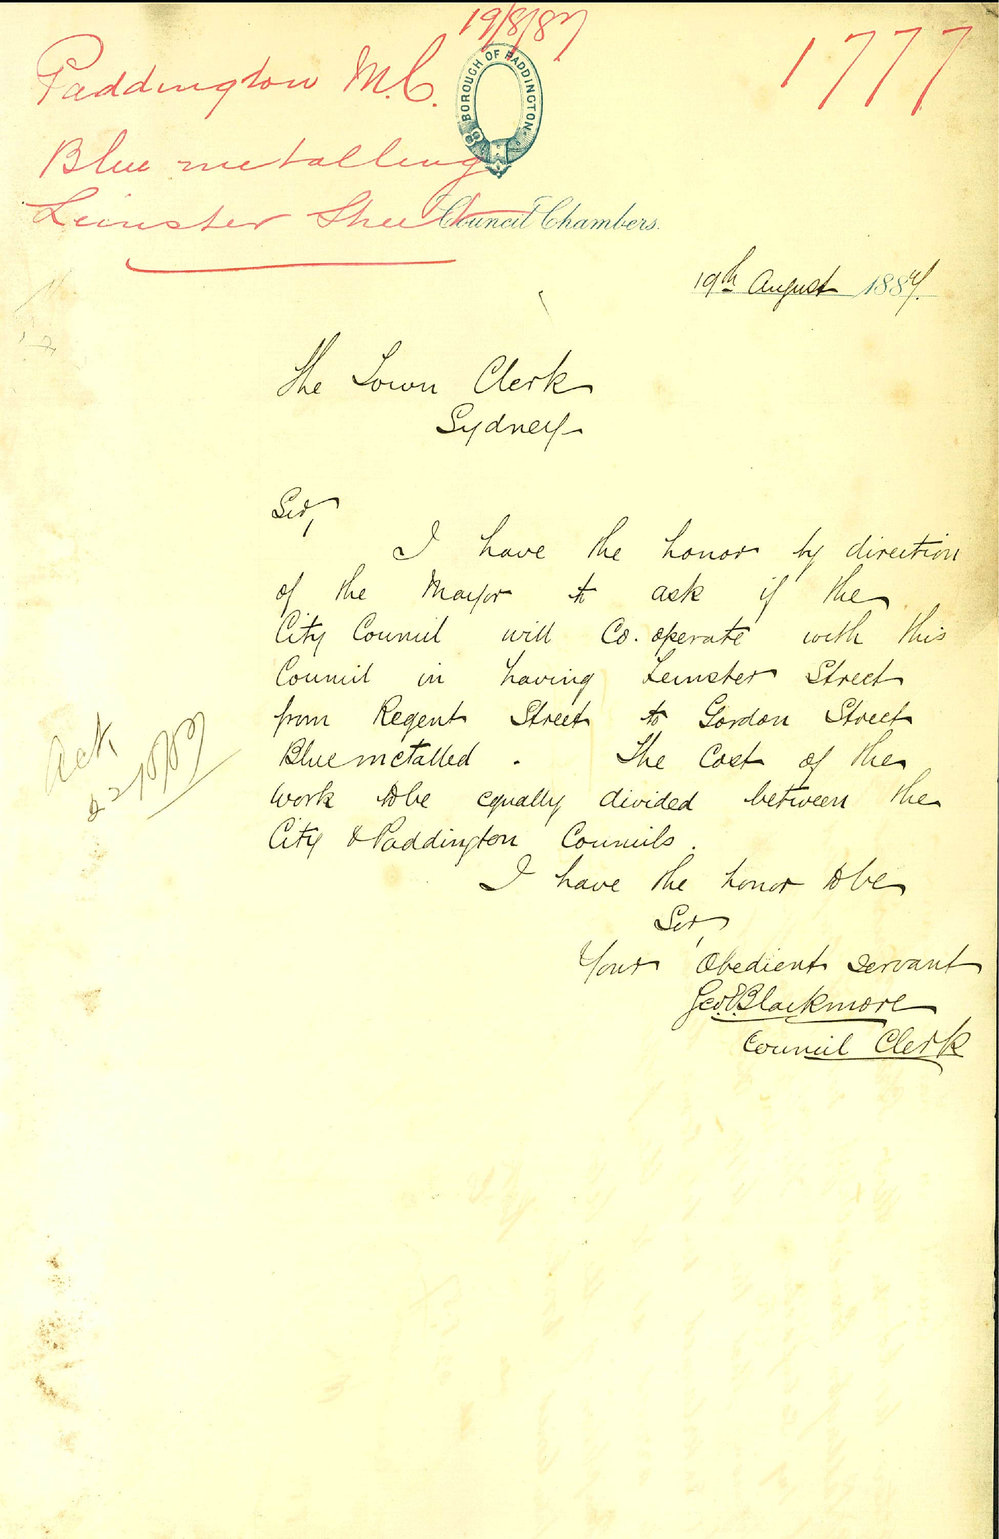 19/8/87
Paddington M.C.
1777
BOROUGH OF PADDINGTON
Blue metalling
Leinster Street
Council Chambers.
19th August 1887.
The Town Clerk
Sydney
Sir,
I have the honor by direction
of the Mayor to ask if the
City Council will Co.operate with this
Council in having Leinster Street
from Regent Street to Gordon Street
Bluemetalled. The Cost of the
work to be equally divided between the
City & Paddington Councils.
I have the honor to be
Sir,
Your Obedient Servant
Geo. P. Blackmore
Council Clerk
Ack.
22/8/87